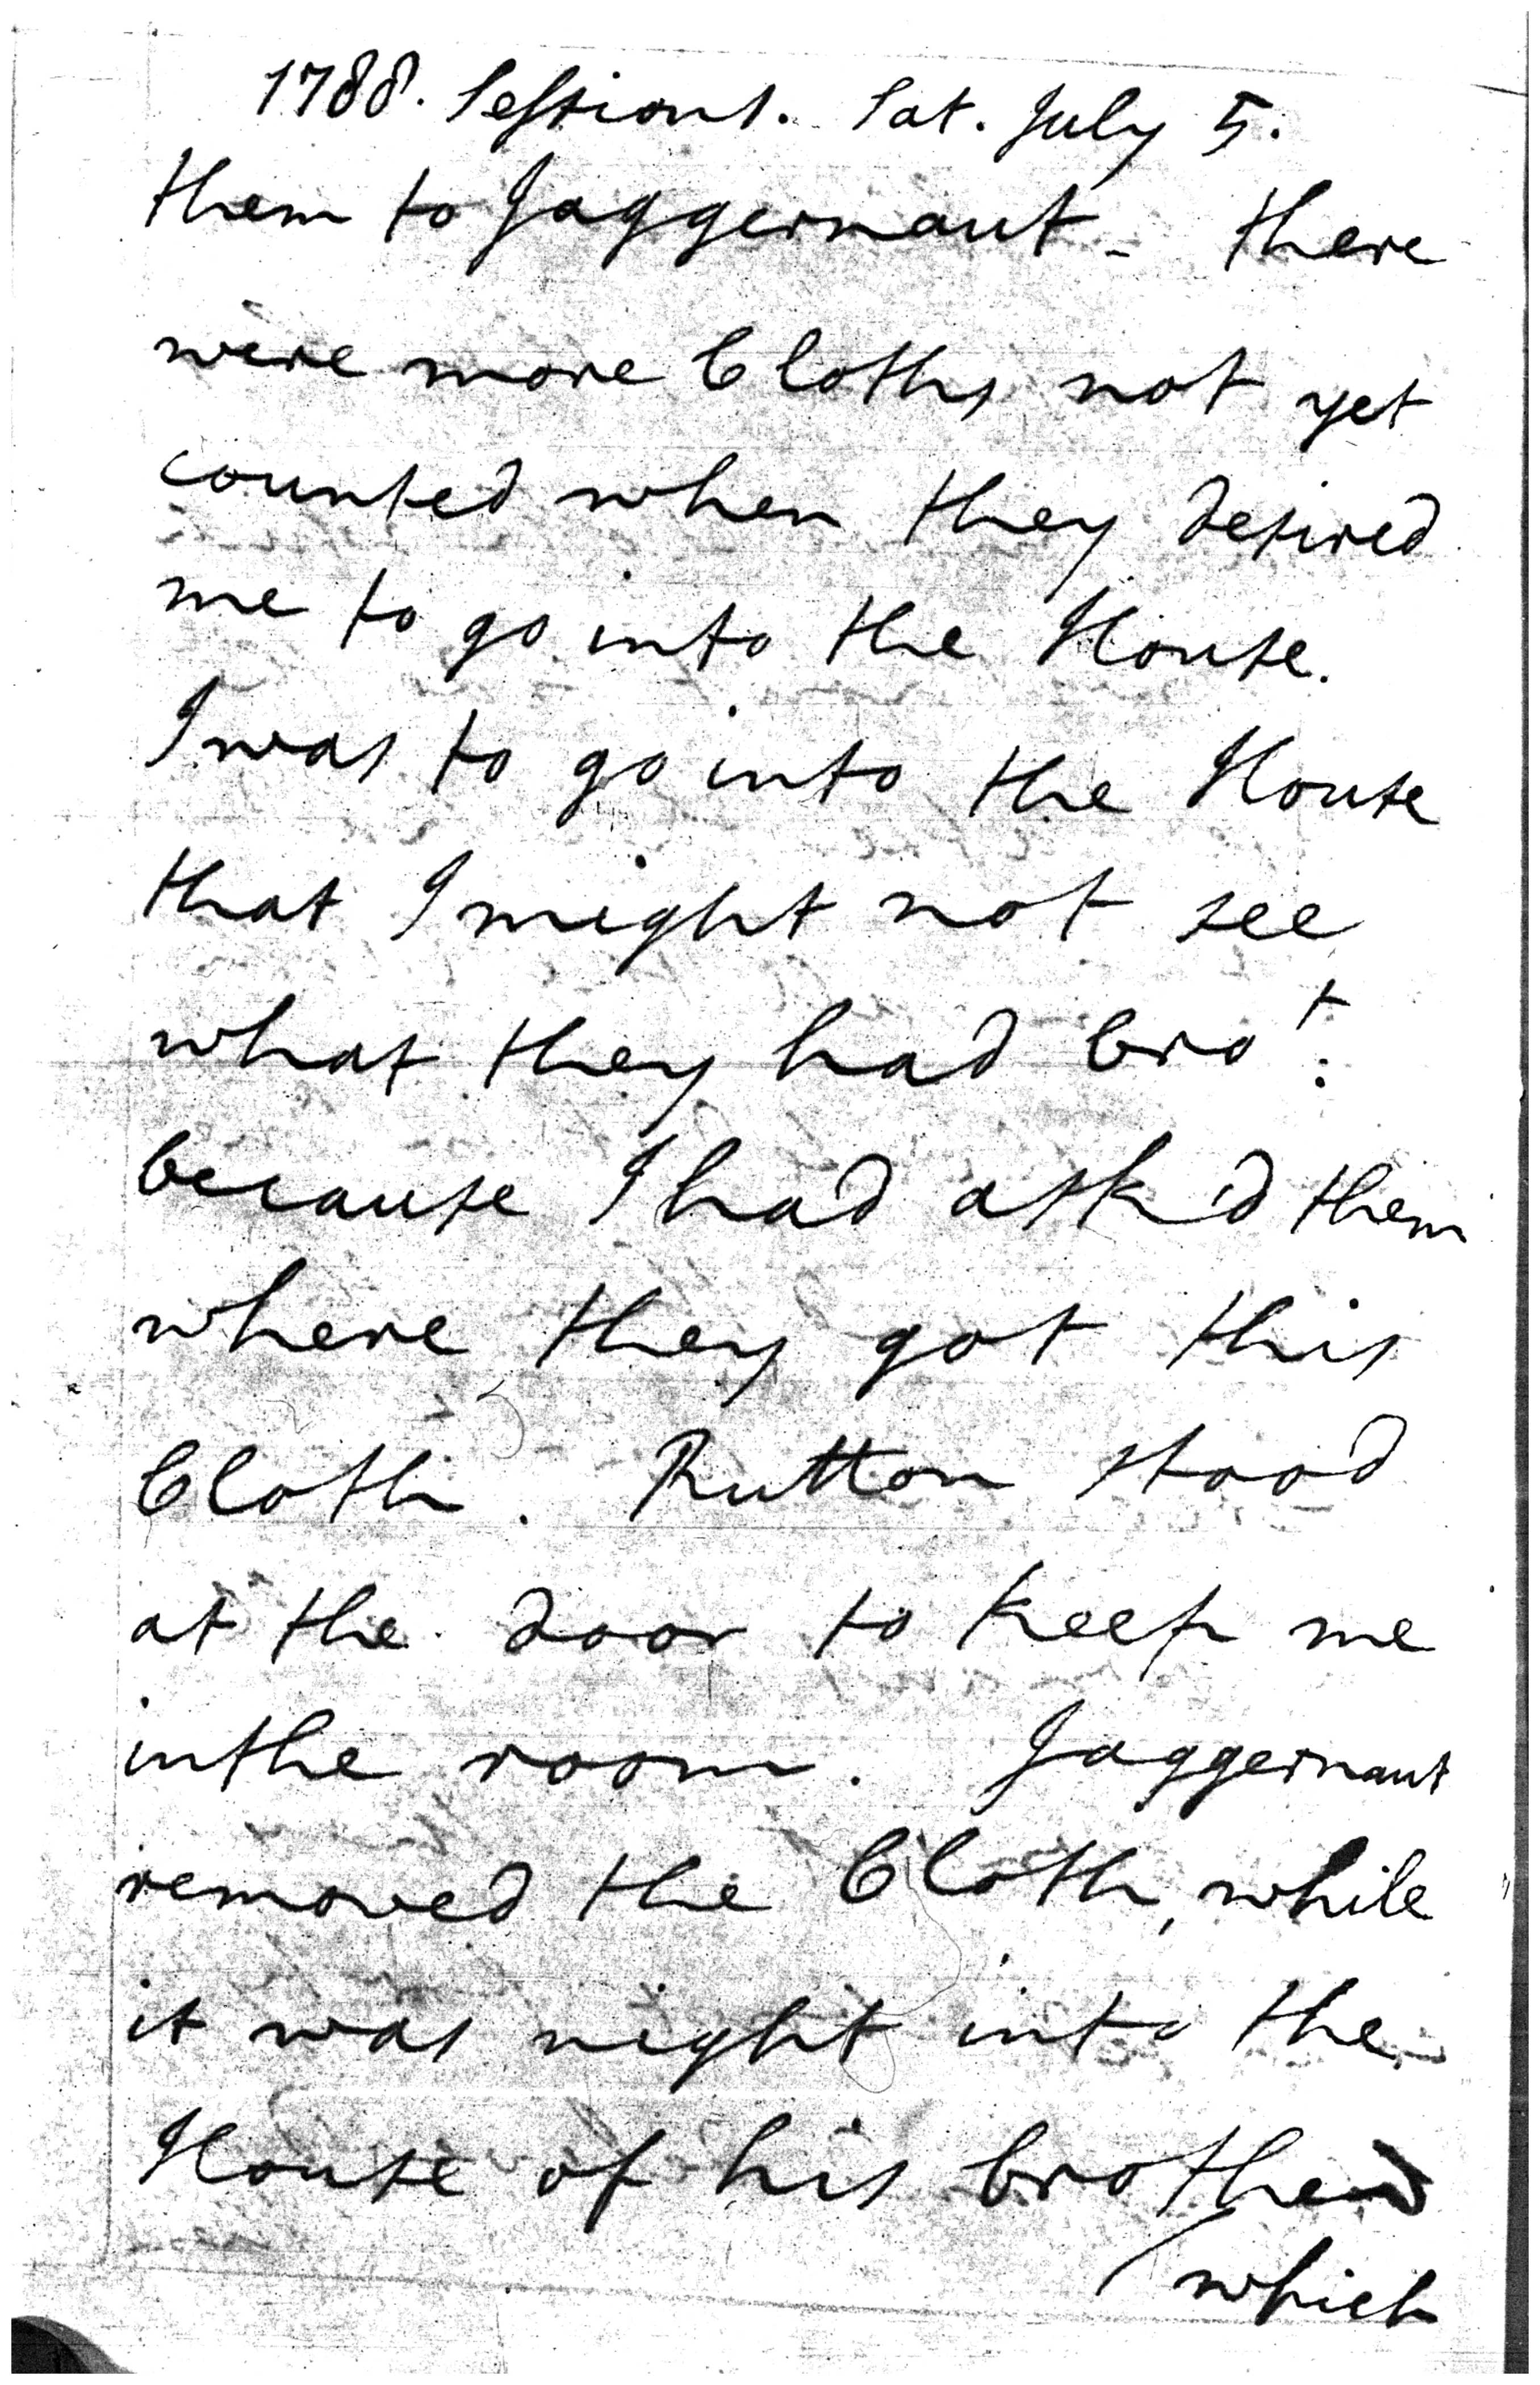 1788. Sessions. Sat. July 5.
them to Jaggernaut - there
were more Cloths not yet
counted when they desired
me to go into the House.
I was to go into the House
that I might not see
what they had bro^t.
because I had ask'd them
where they got this
Cloth. Rutton stood
at the door to keep me
in the room. Jaggernaut
removed the Cloth, while
it was night into the
House of his brother
which